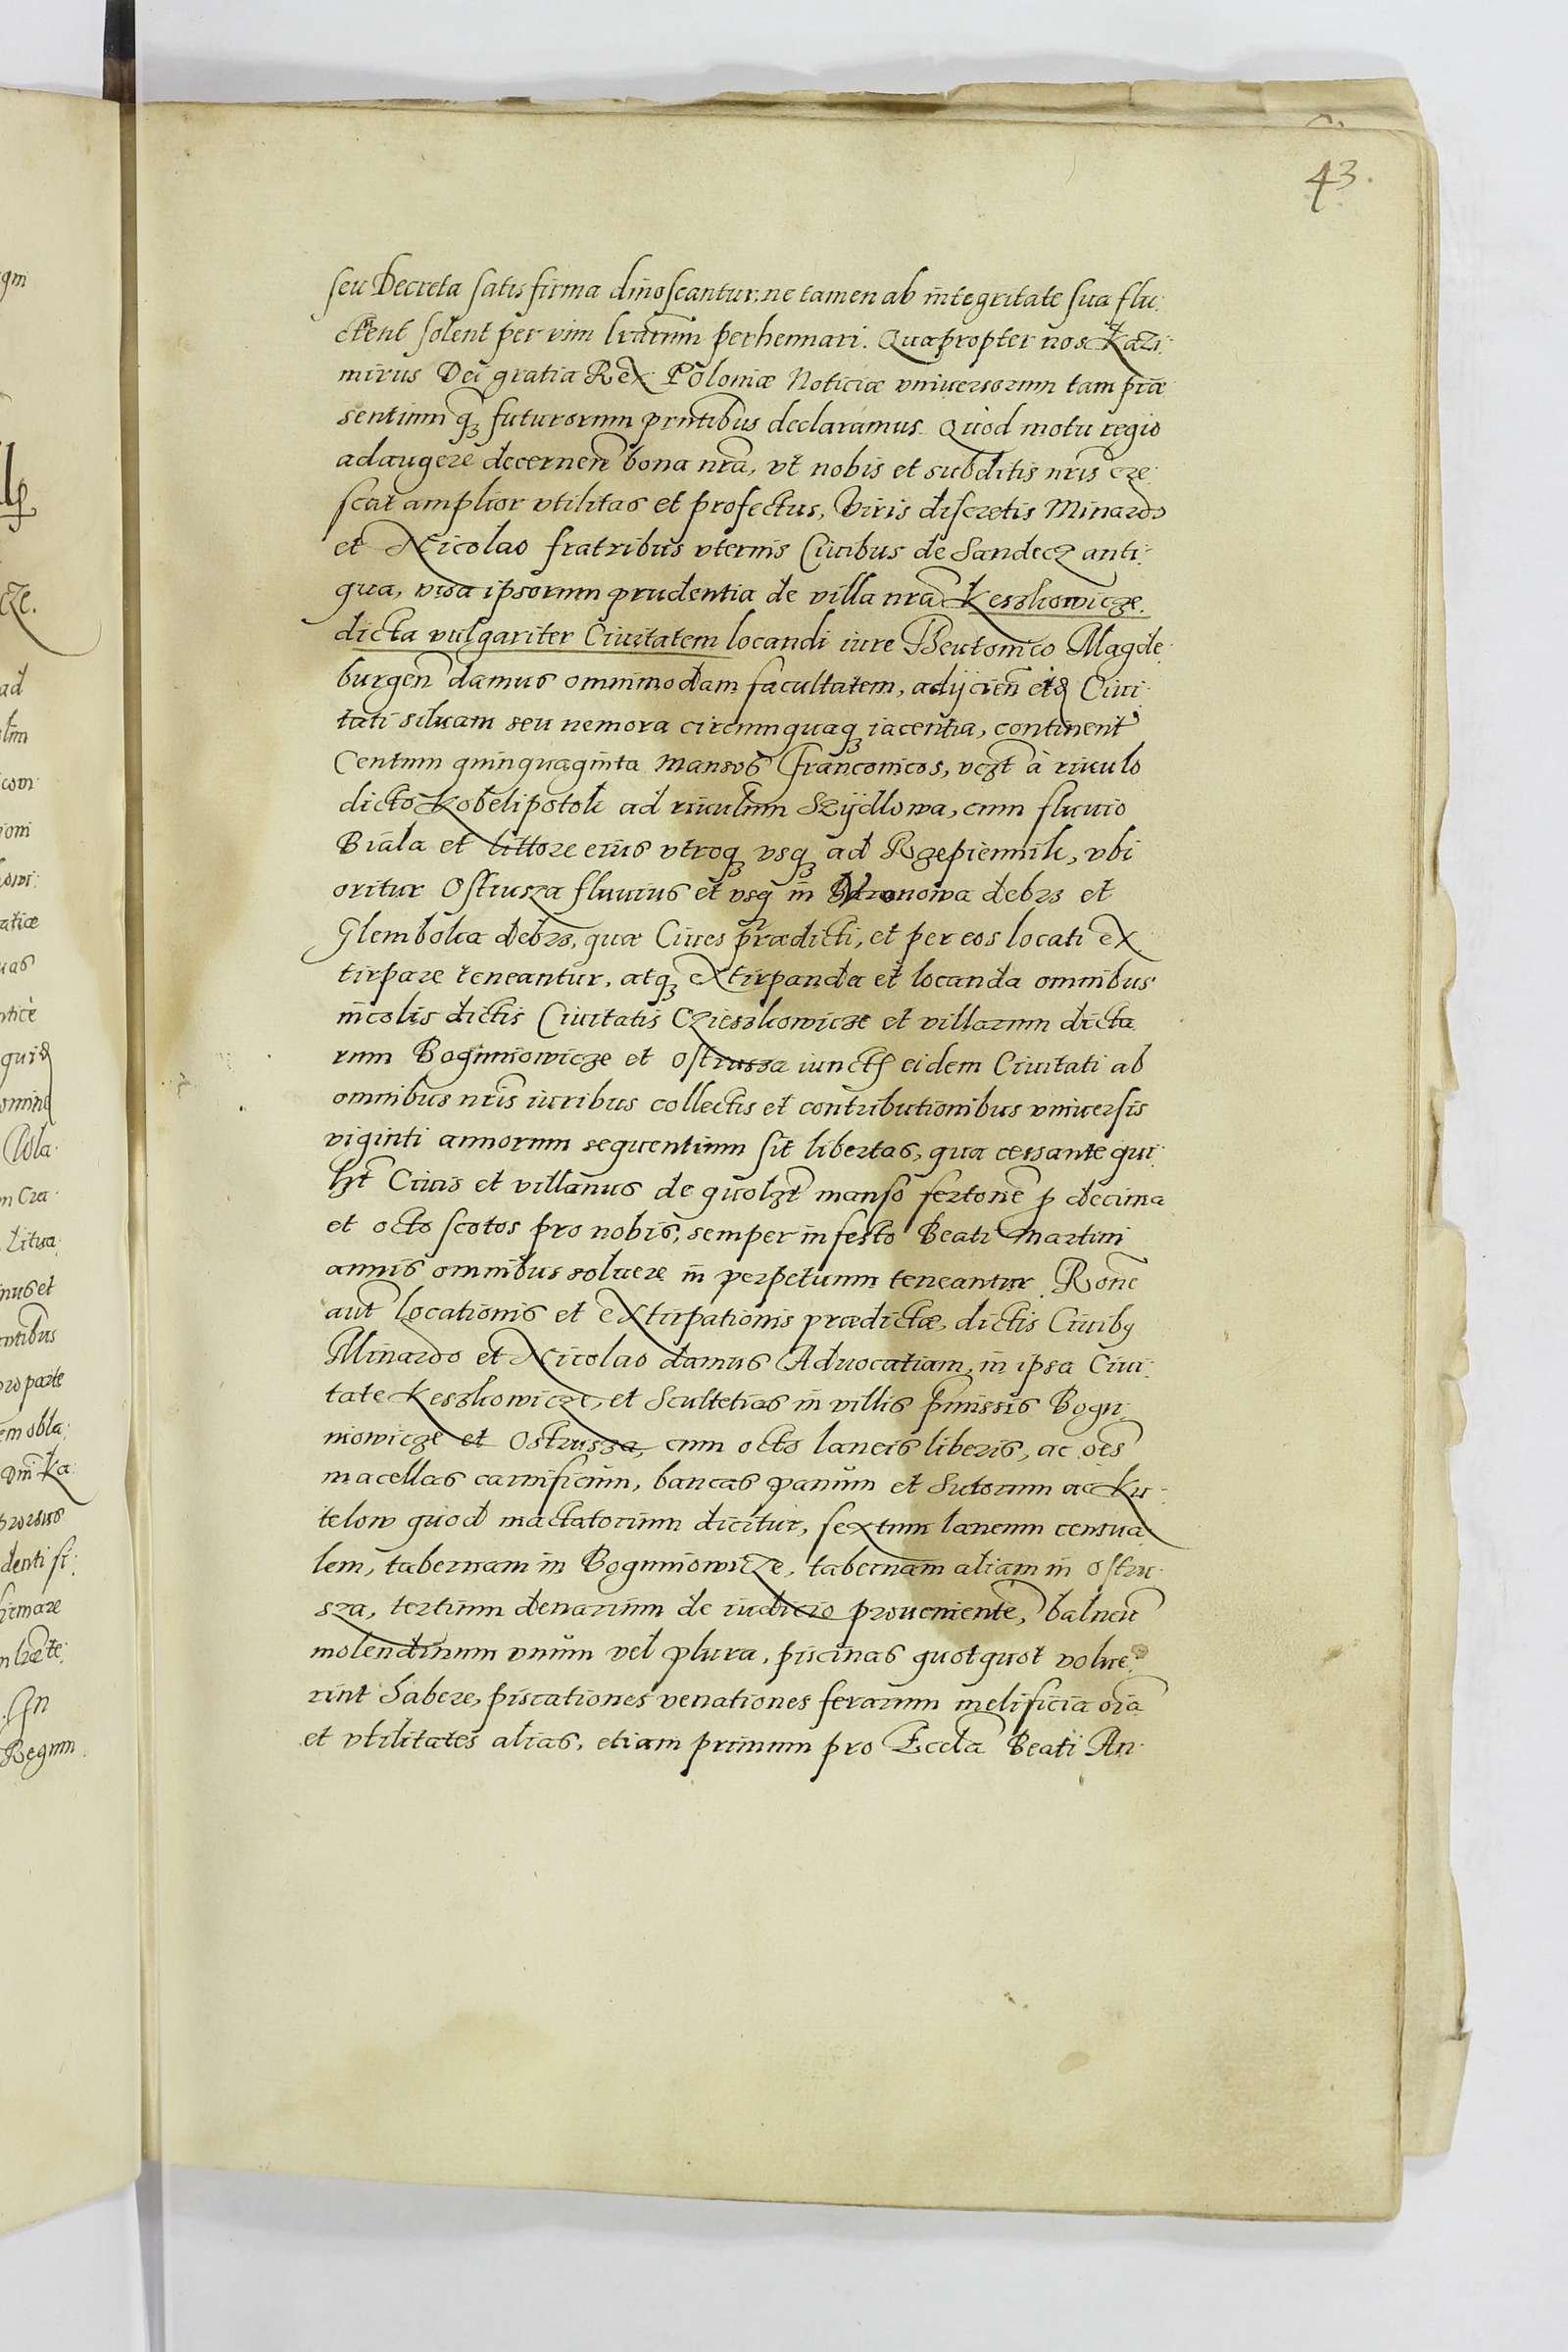 43.
seu Decreta satis firma dinoscantur, ne tamen ab integritate sua flu:
ctent solent per vim lrarum perhennari. Quapropter nos Kazi:
mirus Dei gratia Rex Poloniæ Noticiæ vniuersorum tam præ
sentium q̨ futurorum prntibus declaramus. Quod motu regio
adaugere decernen̄ bona nrā, vt nobis et subditis nris cre:
scat amplior vtilitas et profectus, Viris discretis Minardo
et Nicolao fratribus vternis Ciuibus de Sandecz anti:
qua, visa ipsorum prudentia de villa nrā Keszkowicze
dicta vulgariter Ciuitatem locandi iure Teutonico Magde:
burgen̄ damus omnimodam facultatem, adijcien̄ eid Ciui:
tati siluam seu nemora circumquaq̨ iacentia, continent
Centum quinquaginta mansos Franconicos, vczt à riuulo
dicto Kobelipotok ad riuulum Szijdlowa, cum fluuio
Biala et littore eius vtroq̨ vsq̨ ad Rzepiennik, vbi
oritur Ostrusza fluuius et vsq̨ in Wronowa debrs et
Glemboka debrs, quæ Ciues prædicti, et per eos locati ex
tirpare teneantur, atq̨ extirpanda et locanda omnibus
incolis dictis Ciuitatis Czieszkowicze et villarum dicta
rum Boguniowicze et Ostrusza iunct eidem Ciuitati ab
omnibus nris iuribus collectis et contributionibus vniuersis
viginti annorum sequentium sit libertas, qua cessante qui:
lzt Ciuis et villanus de quolzt manso fertonē p decima
et octo scotos pro nobis, semper in festo Beati Martini
annis omnibus soluere in perpetuum teneantur. Ronē
aut̄ locationis et extirpationis prædictæ, dictis Ciuibq
Minardo et Nicolao damus Aduocatiam in ipsa Ciui:
tate Keszkowicze, et Scultetias in villis pmissis Bogu:
niowicze et Ostrusza, cum octo laneis liberis, ac oēs
macellas carnificum, bancas panum et Sutorum ac Ku:
telow quod mactatorium dicitur, sextum laneum censua
lem, tabernam in Boguniowicze, tabernam aliam in Ostru:
sza, tertium denarium de iudicio prouenientē, balneū
molendinum vnum vel plura, piscinas quotquot volue:
rint habere, piscationes venationes ferarum melificia oīa
et vtilitates alias, etiam primum pro Eccla Beati An: